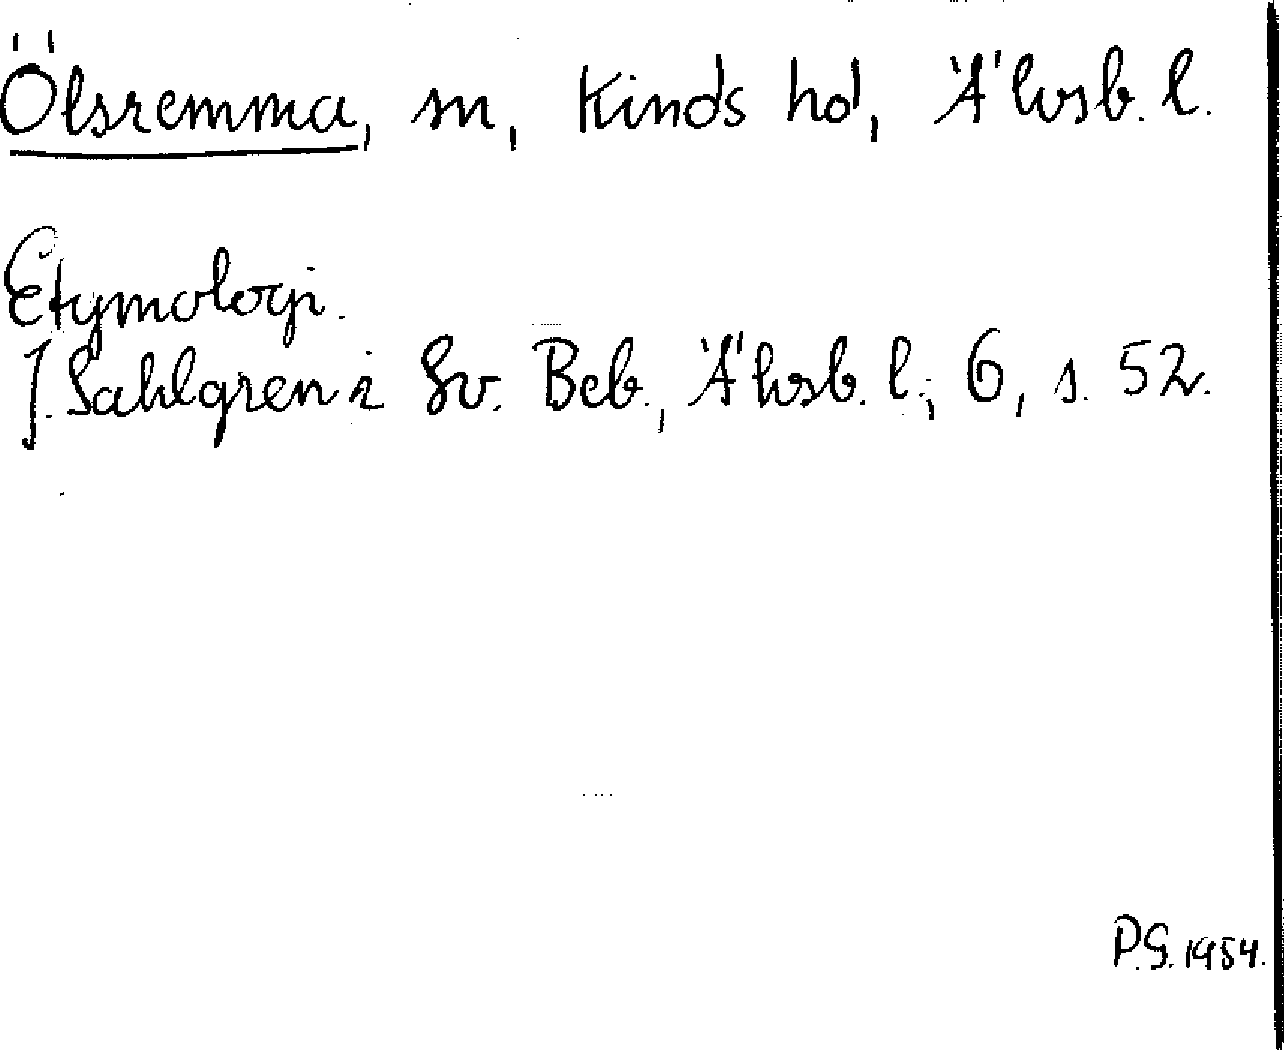 Ölsremma, sn, Kinds hd, Älvsb. l.
Etymologi.
J. Sahlgren i Sv. Beb., Älvsb. l.; 6, s. 52.
P.G. 1954.